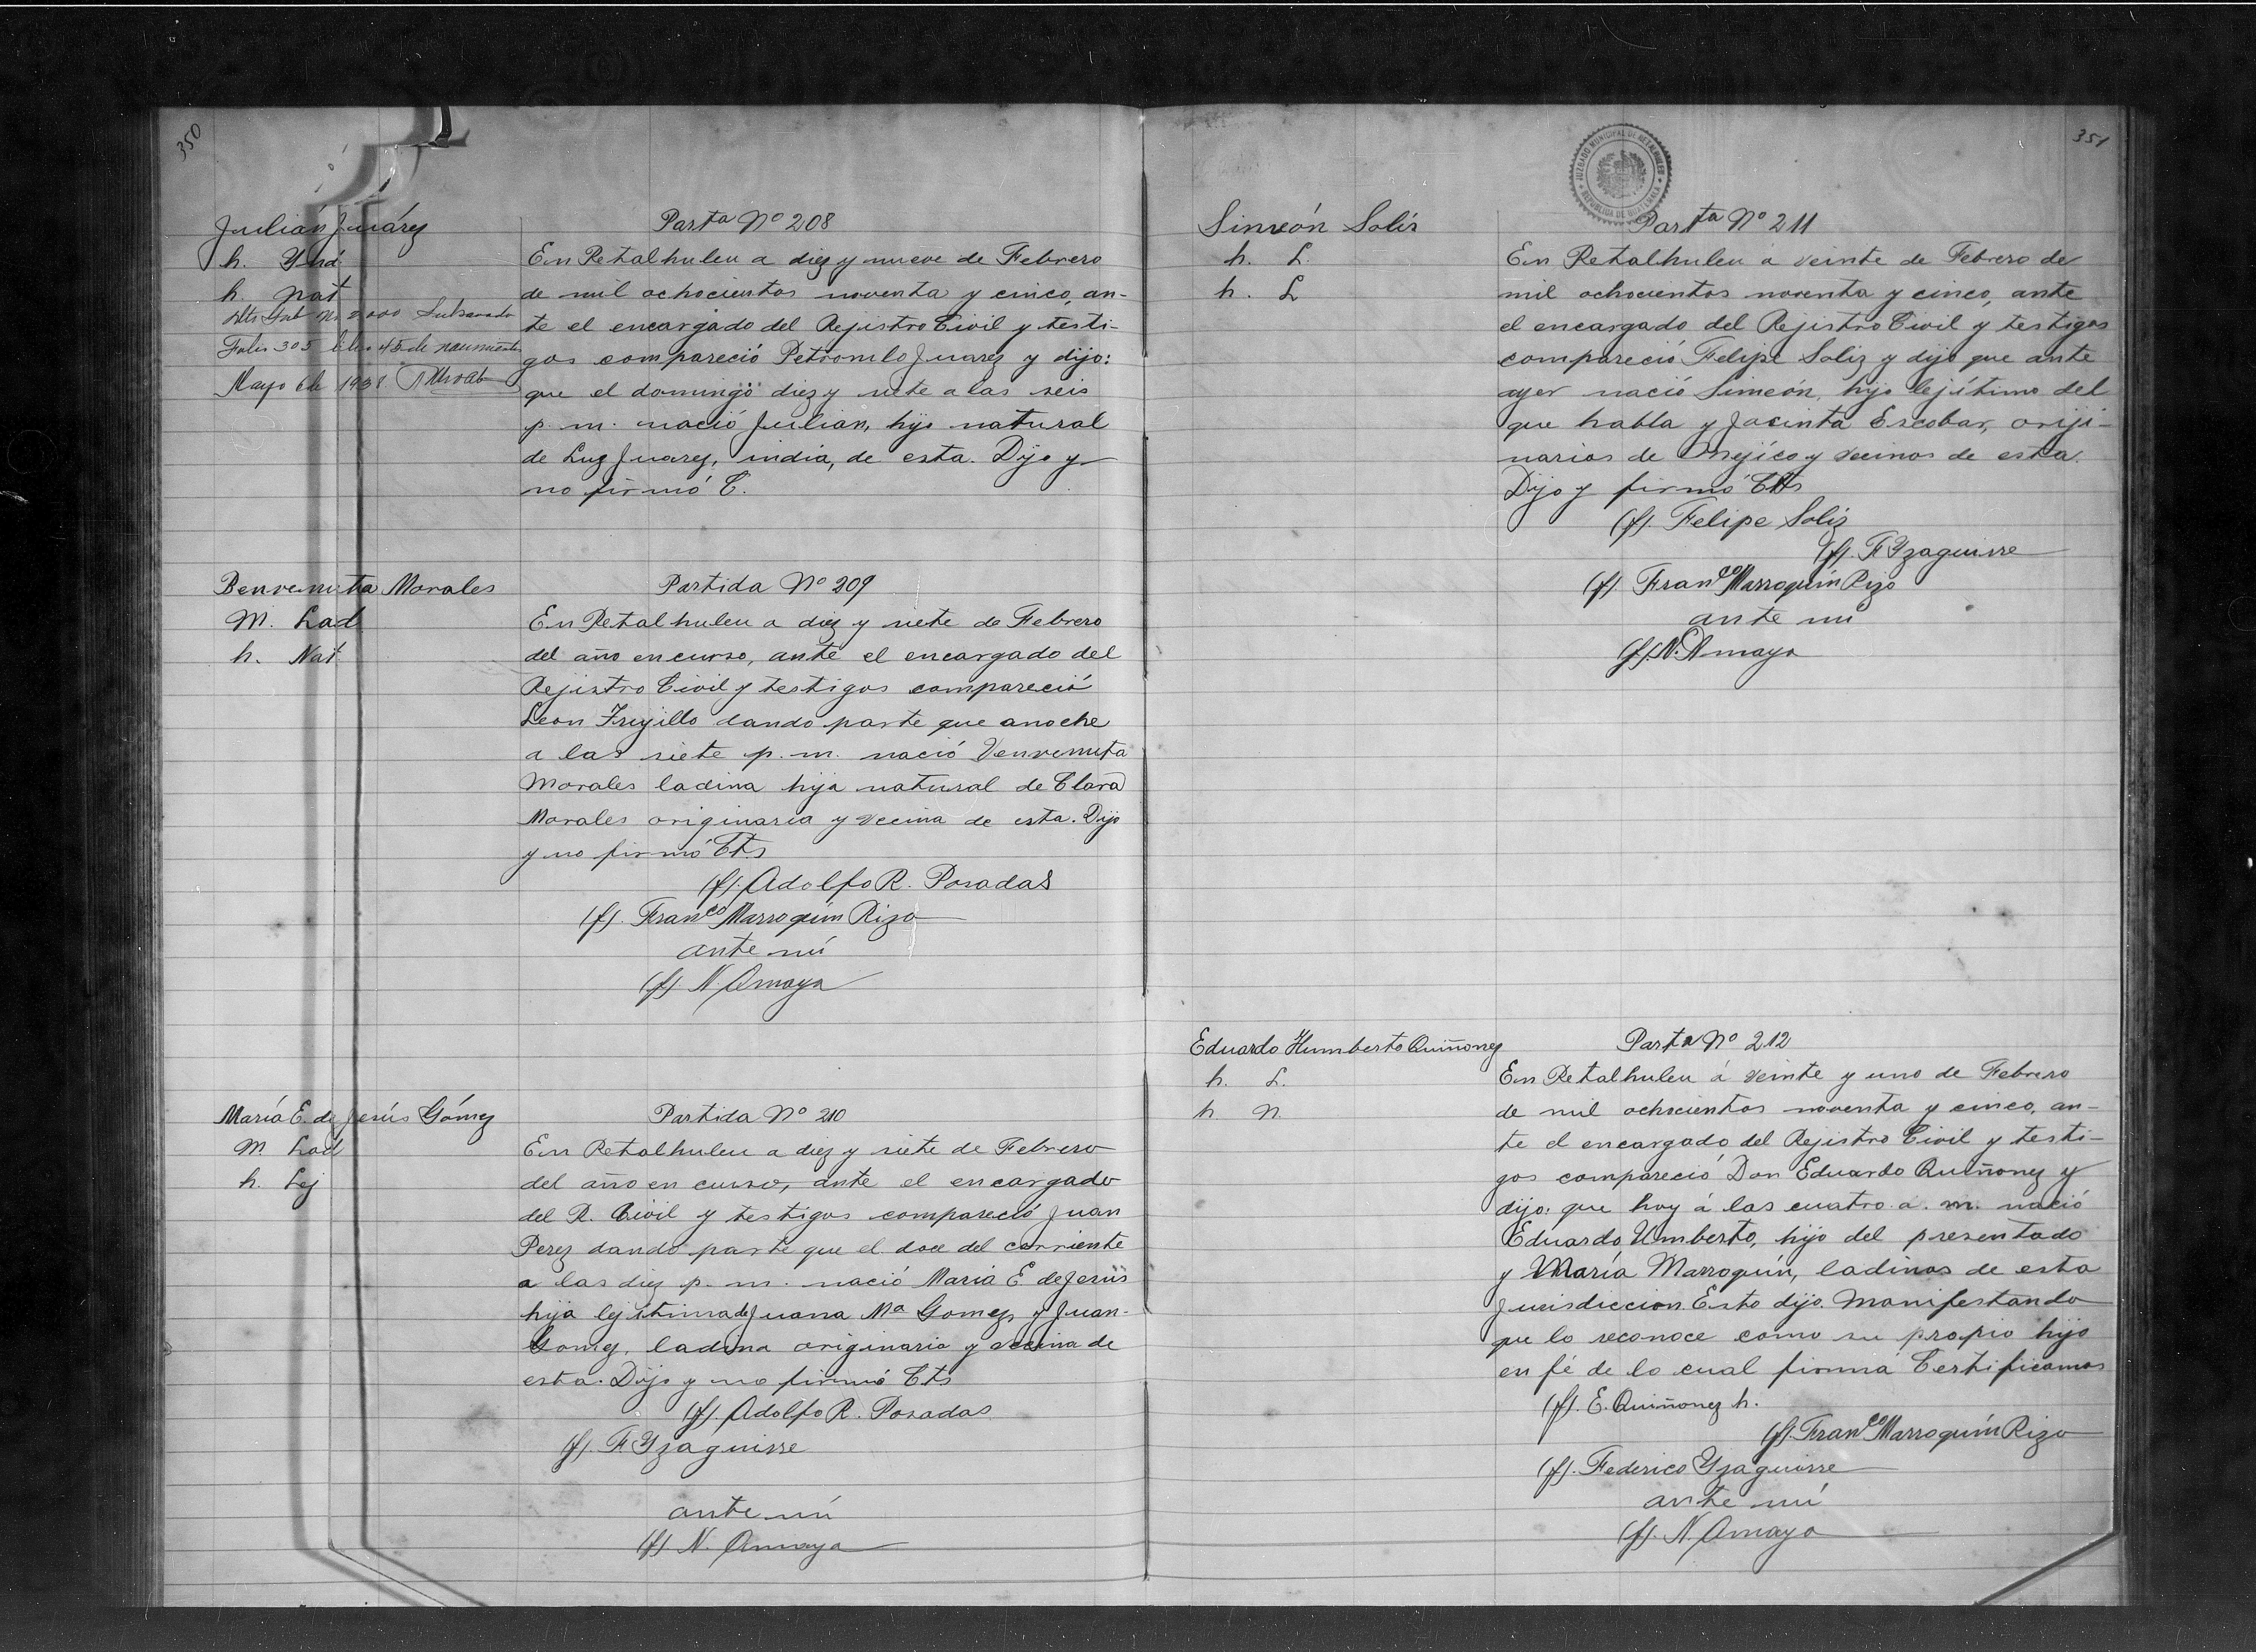 350
Julián Juárez
h. Ynd.
h. nat
Folio 305 libro 45 de
Mayo 6 de 1938
Parta Nº 208
En Retalhuleu a diez y nueve de Febrero
de mil ochocientos noventa y cinco, an-
te el encargado del Rejistro Civil y testi-
gos compareció Petronilo Juarez y dijo:
que el domingo diez y siete a las seis
p. m. nació Julian, hijo natural
de Luz Juarez, india, de esta. Dijo y
no firmó C.
Benvenuta Morales
M. Lad
h. Nat.
Partida Nº 209
En Retalhuleu a diez y siete de Febrero
del año en curso, ante el encargado del
Rejistro Civil y testigos compareció
Leon Trujillo dando parte que anoche
a las siete p. m. nació Venvenuta
Morales ladina hija natural de Clara
Morales originaria y vecina de esta. Dijo
y no firmó Cts
(f). Adolfo R. Posadas
(f). Franco Marroquín Rizo
ante mí
(f). N. Amaya
María E. de Jesús Gómez
M. Lad
h. Lej
Partida Nº 210
En Retalhuleu a diez y siete de Febrero
del año en curso, ante el encargado
del R. Civil y testigos compareció Juan
Perez dando parte que el doce del corriente
a las diez p. m. nació María E de Jesús
hija lejítima de Juana Ma Gomez y Juan
Gomez, ladina originaria y vecina de
esta. Dijo y no firmó Cts
(f). Adolfo R. Posadas
(f). F Yzaguirre
ante mí
(f) N. Amaya
351
JUZGADO MUNICIPAL DE RETALHULEU
REPUBLICA DE GUATEMALA
Simeón Solís
h. L.
h. L
Parta Nº 211
En Retalhuleu a veinte de Febrero de
mil ochocientos noventa y cinco, ante
el encargado del Rejistro Civil y testigos
compareció Felipe Soliz y dijo que ante
ayer nació Simeón, hijo lejítimo del
que habla y Jacinta Escobar, oriji-
narios de Mejíco y vecinos de esta.
Dijo y firmó Cts
(f). Felipe Soliz
(f). F Yzaguirre
(f). Franco Marroquín Rizo
ante mí
(f). N. Amaya
Eduardo Humberto Quiñonez
h. L.
h. n.
Parta Nº 212
En Retalhuleu á veinte y uno de Febrero
de mil ochocientos noventa y cinco, an-
te el encargado del Rejistro Civil y testi-
gos compareció Don Eduardo Quiñonez y
dijo: que hoy á las cuatro a. m. nació
Eduardo Umberto, hijo del presentado
y María Marroquín, ladinos de esta
Jurisdiccion. Esto dijo. Manifestando
que lo reconoce como su propio hijo
en fé de lo cual firma Certificamos
(f). E. Quiñonez h.
(f). Franco Marroquín Rizo
(f). Federico Yzaguirre
ante mí
(f). N. Amaya